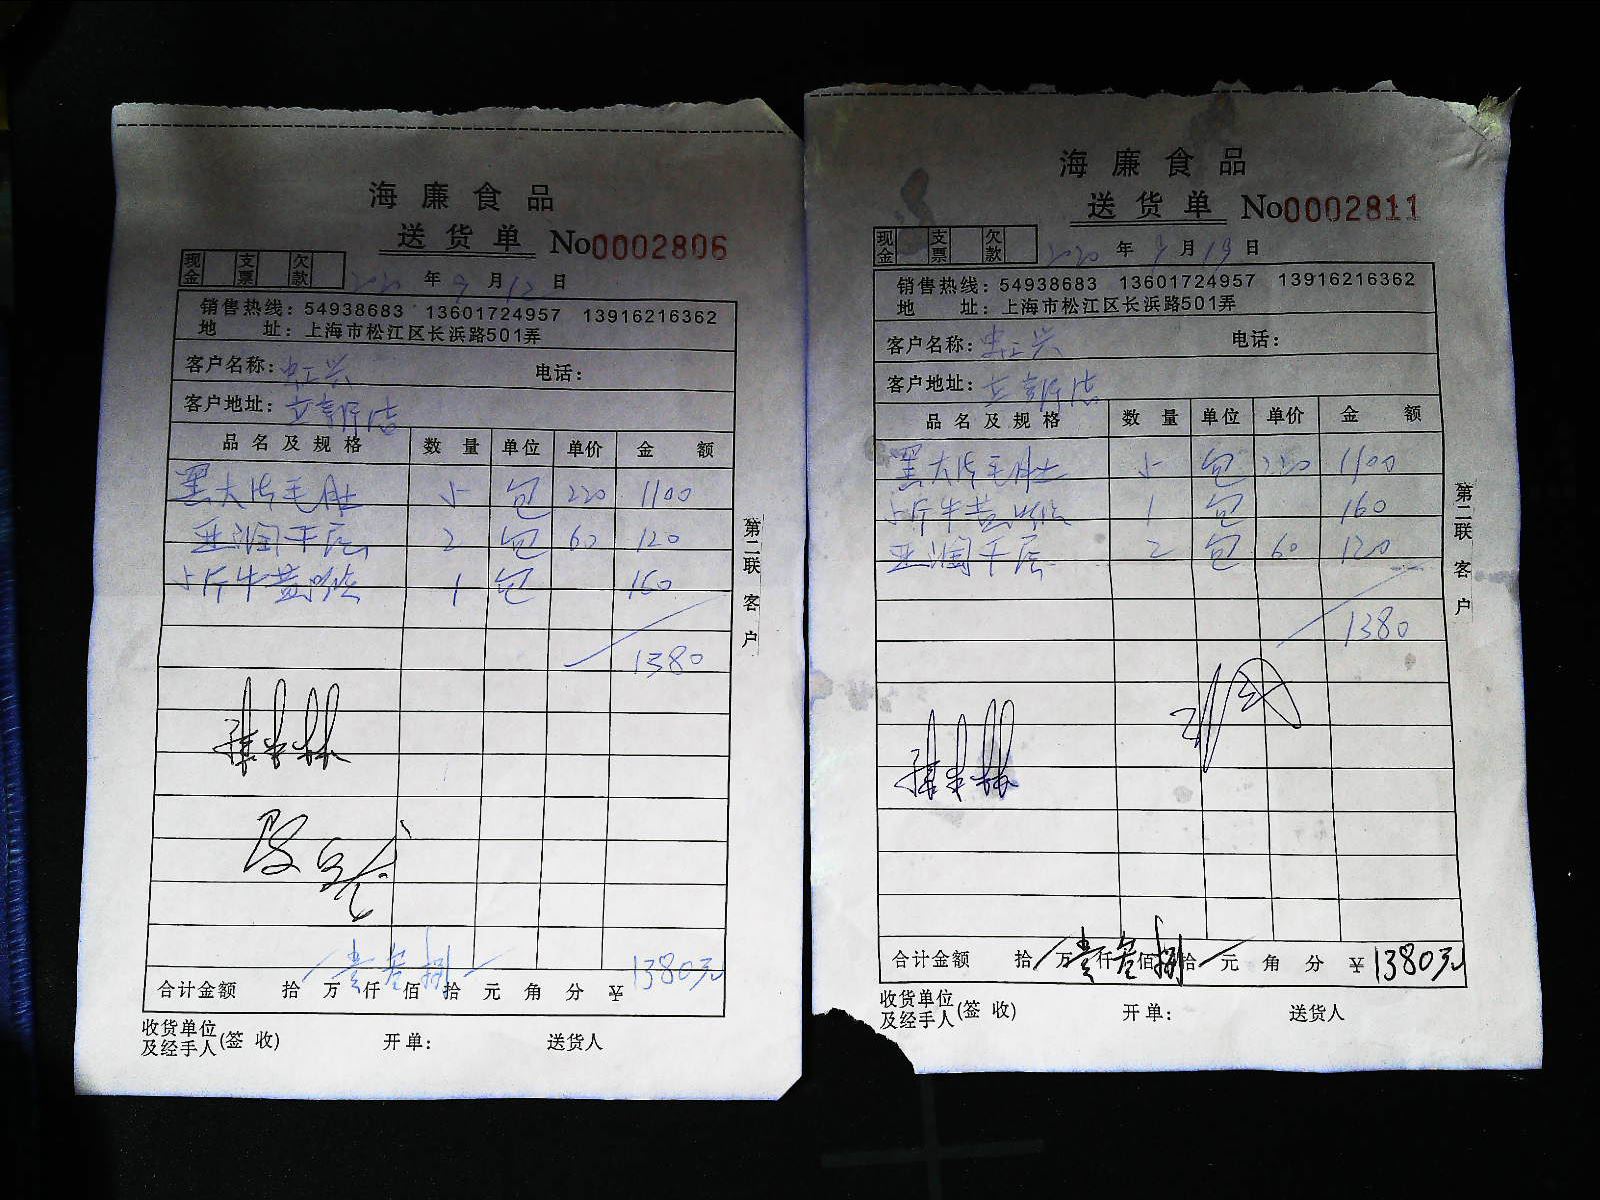 海廉食品
送货单 No0002806
现金 支票 欠款
2020年9月12日
销售热线：54938683 13601724957 13916216362
地 址：上海市松江区长浜路501弄
客户名称：
电话：
客户地址：
品名及规格 数量 单位 单价 金额
黑大片毛肚 5 包 220 1100
亚润千层 2 包 60 120
5斤牛黄喉 1 包 160
1380
合计金额 拾万壹仟叁佰捌拾元角分 ￥1380元
收货单位及经手人(签收) 开单： 送货人
第二联 客户
海廉食品
送货单 No0002811
现金 支票 欠款
2020年9月19日
销售热线：54938683 13601724957 13916216362
地 址：上海市松江区长浜路501弄
客户名称：
电话：
客户地址：
品名及规格 数量 单位 单价 金额
黑大片毛肚 5 包 220 1100
5斤牛黄喉 1 包 160
亚润千层 2 包 60 120
1380
合计金额 拾万壹仟叁佰捌拾元角分 ￥1380元
收货单位及经手人(签收) 开单： 送货人
第二联 客户